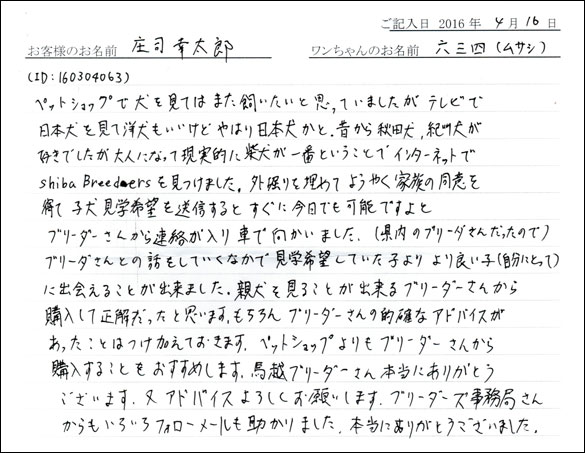 ご記入日 2016 年 4 月 16 日
お客様のお名前 庄司 幸太郎 ワンちゃんのお名前 六三四(ムサシ)
(ID:160304063)
ペットショップで犬を見てはまた飼いたいと思っていましたがテレビで
日本犬を見て洋犬もいいけどやはり日本犬かと。昔から秋田犬,紀州犬が
好きでしたが大人になって現実的に柴犬が一番ということでインターネットで
shiba Breedersを見つけました。外掘りを埋めてようやく家族の同意を
得て子犬見学希望を送信するとすぐに今日でも可能ですよと
ブリーダーさんから連絡が入り車で向かいました。(県内のブリーダさんだったので)
ブリーダさんとの話をしていくなかで見学希望していた子よりより良い子(自分にとって)
に出会えることが出来ました。親犬を見ることが出来るブリーダーさんから
購入して正解だったと思います。もちろんブリーダーさんの的確なアドバイスが
あったことはつけ加えておきます。ペットショップよりもブリーダーさんから
購入することをおすすめします。馬越ブリーダーさん本当にありがとう
ございます。又アドバイスよろしくお願いします。ブリーダーズ事務局さん
からもいろいろフォローメールも助かりました。本当にありがとうございました。